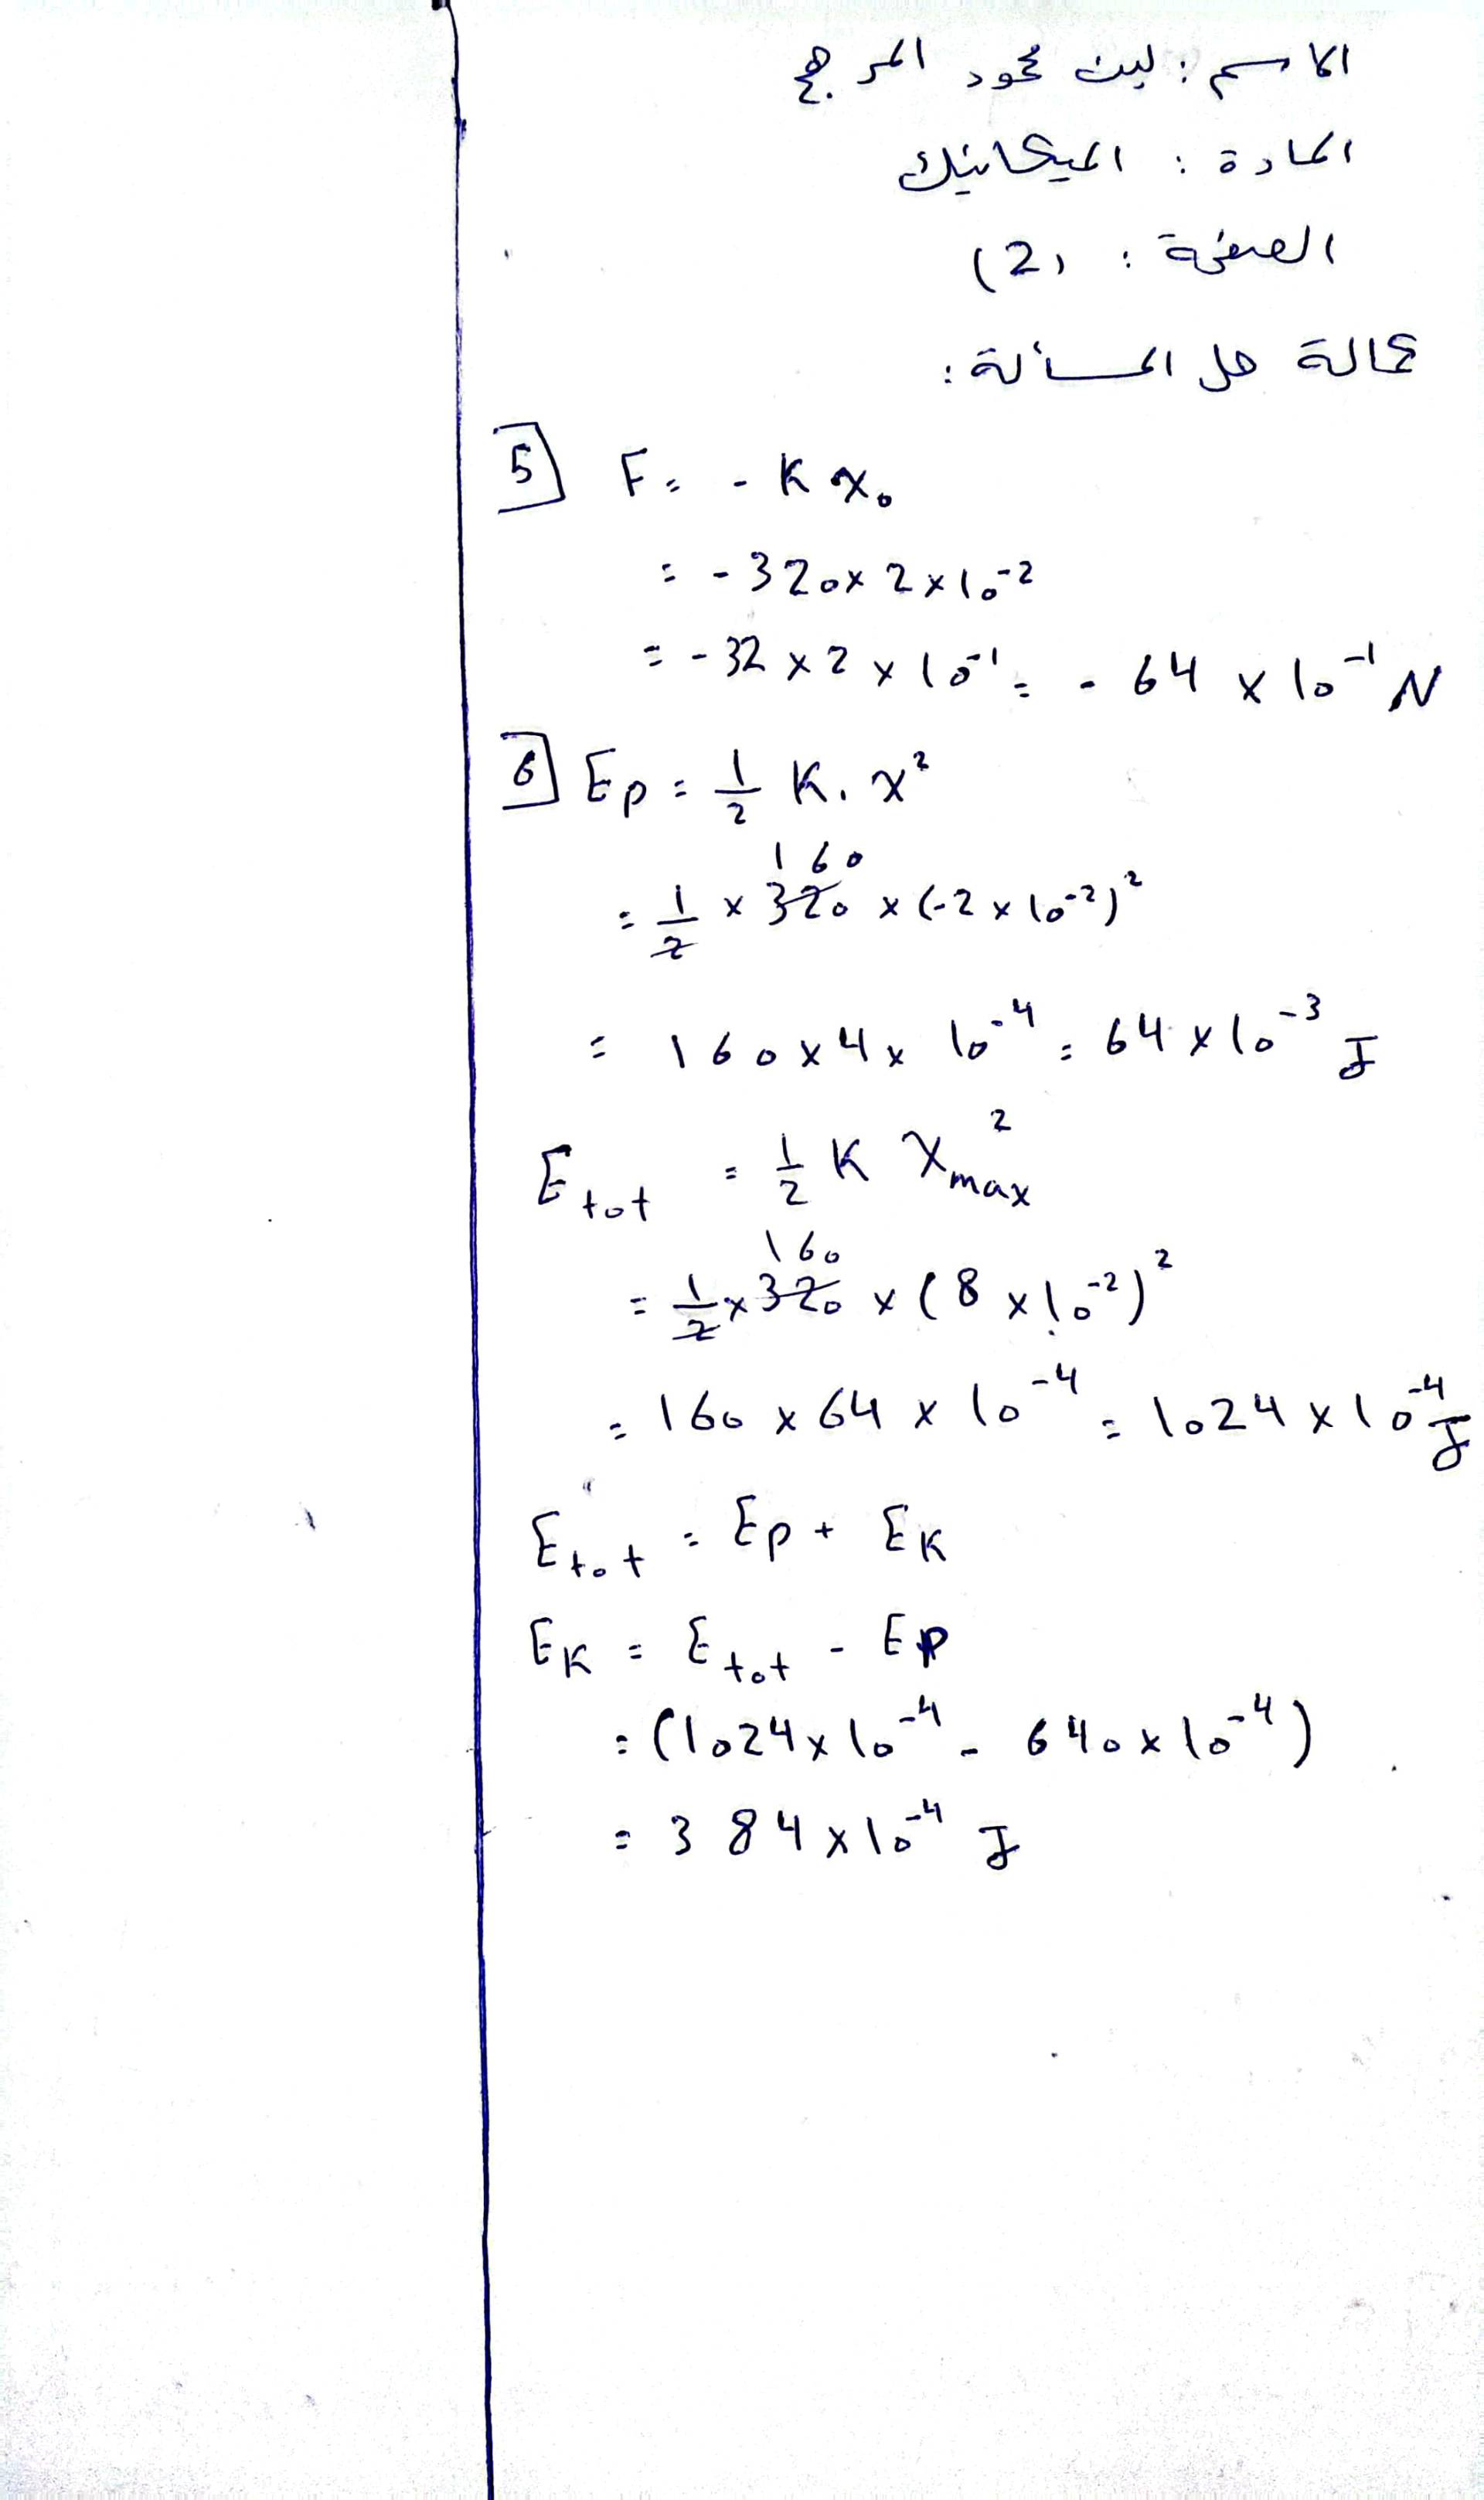 الاسم : ليث محمود المرجح
المادة : الميكانيك
الصفحة : (2)
تكملة حل المسألة :
5 F = - K x₀
= - 320 x 2 x 10⁻²
= - 32 x 2 x 10⁻¹ = - 64 x 10⁻¹ N
6 Ep = 1/2 K . x²
160
= 1/2 x 320 x (-2 x 10⁻²)²
= 160 x 4 x 10⁻⁴ = 64 x 10⁻³ J
E tot = 1/2 K X²max
160
= 1/2 x 320 x (8 x 10⁻²)²
= 160 x 64 x 10⁻⁴ = 1024 x 10⁻⁴ J
E tot = Ep + EK
EK = E tot - Ep
= (1024 x 10⁻⁴ - 640 x 10⁻⁴)
= 384 x 10⁻⁴ J